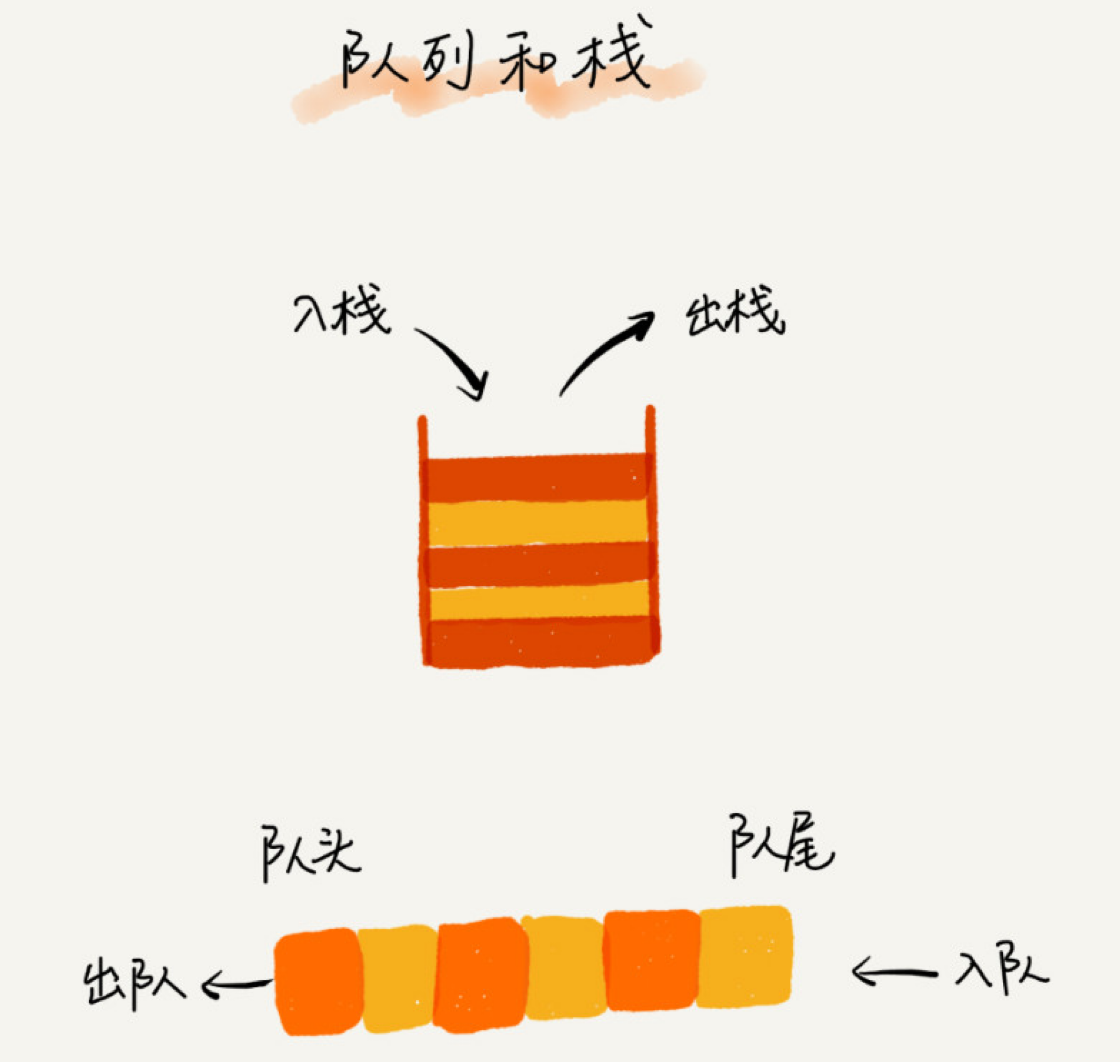 队列和栈
入栈 出栈
队头 队尾
出队 入队